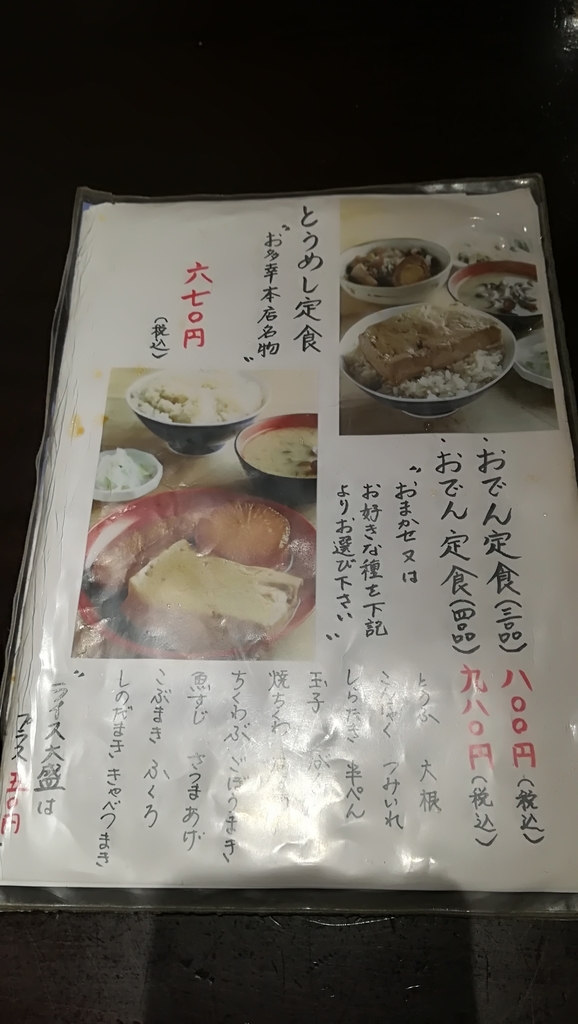 とうめし定食
"お多幸本店名物"
六七〇円
(税込)
・おでん定食(三品)八〇〇円(税込)
・おでん定食(四品)九八〇円(税込)
"おまかせ又は
お好きな種を下記
よりお選び下さい"
とうふ 大根
こんにゃく つみいれ
しらたき 半ぺん
玉子
焼ちくわ
ちくわぶ ごぼうまき
魚すじ さつまあげ
こぶまき ふくろ
しのだまき きゃべつまき
"ライス大盛は
プラス五〇円